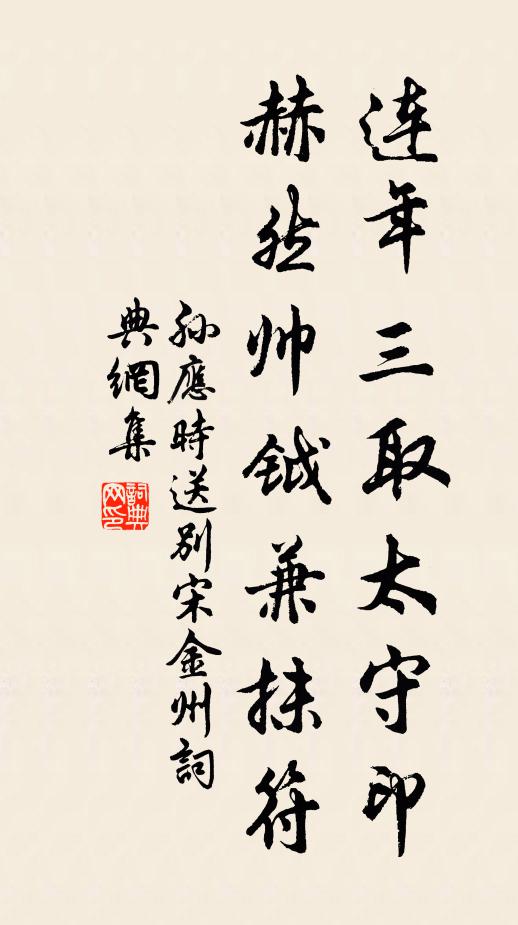 連年三取太守印
赫然帅鉞兼抹符
孙應時送别宋金州詞
典網集
詞典
网印